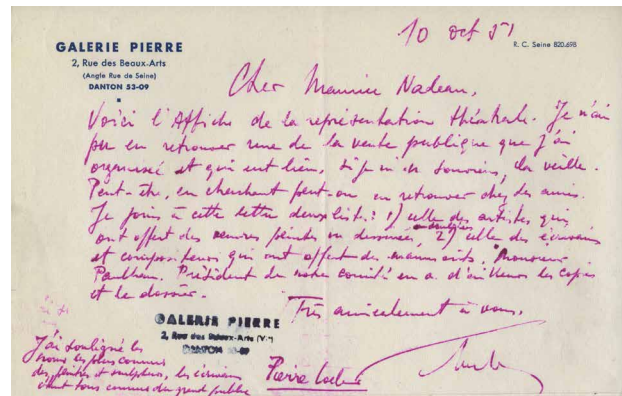 GALERIE PIERRE
2, Rue des Beaux-Arts
(Angle Rue de Seine)
DANTON 53-09
10 oct 51
R. C. Seine 820.698
Cher Maurice Nadeau,
Voici l'Affiche de la représentation théâtrale. Je n'ai
pu en retrouver une de la vente publique que j'ai
organisé et qui eut lieu, si je m'en souviens, la veille.
Peut-être, en cherchant peut-on en retrouver chez des amis.
Je joins à cette lettre deux list.: 1) celle des artistes qui
ont offert des œuvres peintes ou dessinées, ou sculptées 2) celle des écrivains
et compositeurs qui ont offert des manuscrits. Monsieur
Paulhan. Président de notre comité en a d'ailleurs les copies
et le dossier.
Très amicalement à vous.
GALERIE PIERRE
2, Rue des Beaux-Arts (VIe)
DANTON 53-09
J'ai souligné les
noms les plus connus
des peintres et sculpteurs, les écrivains
étant tous connus du grand public
Pierre Loeb